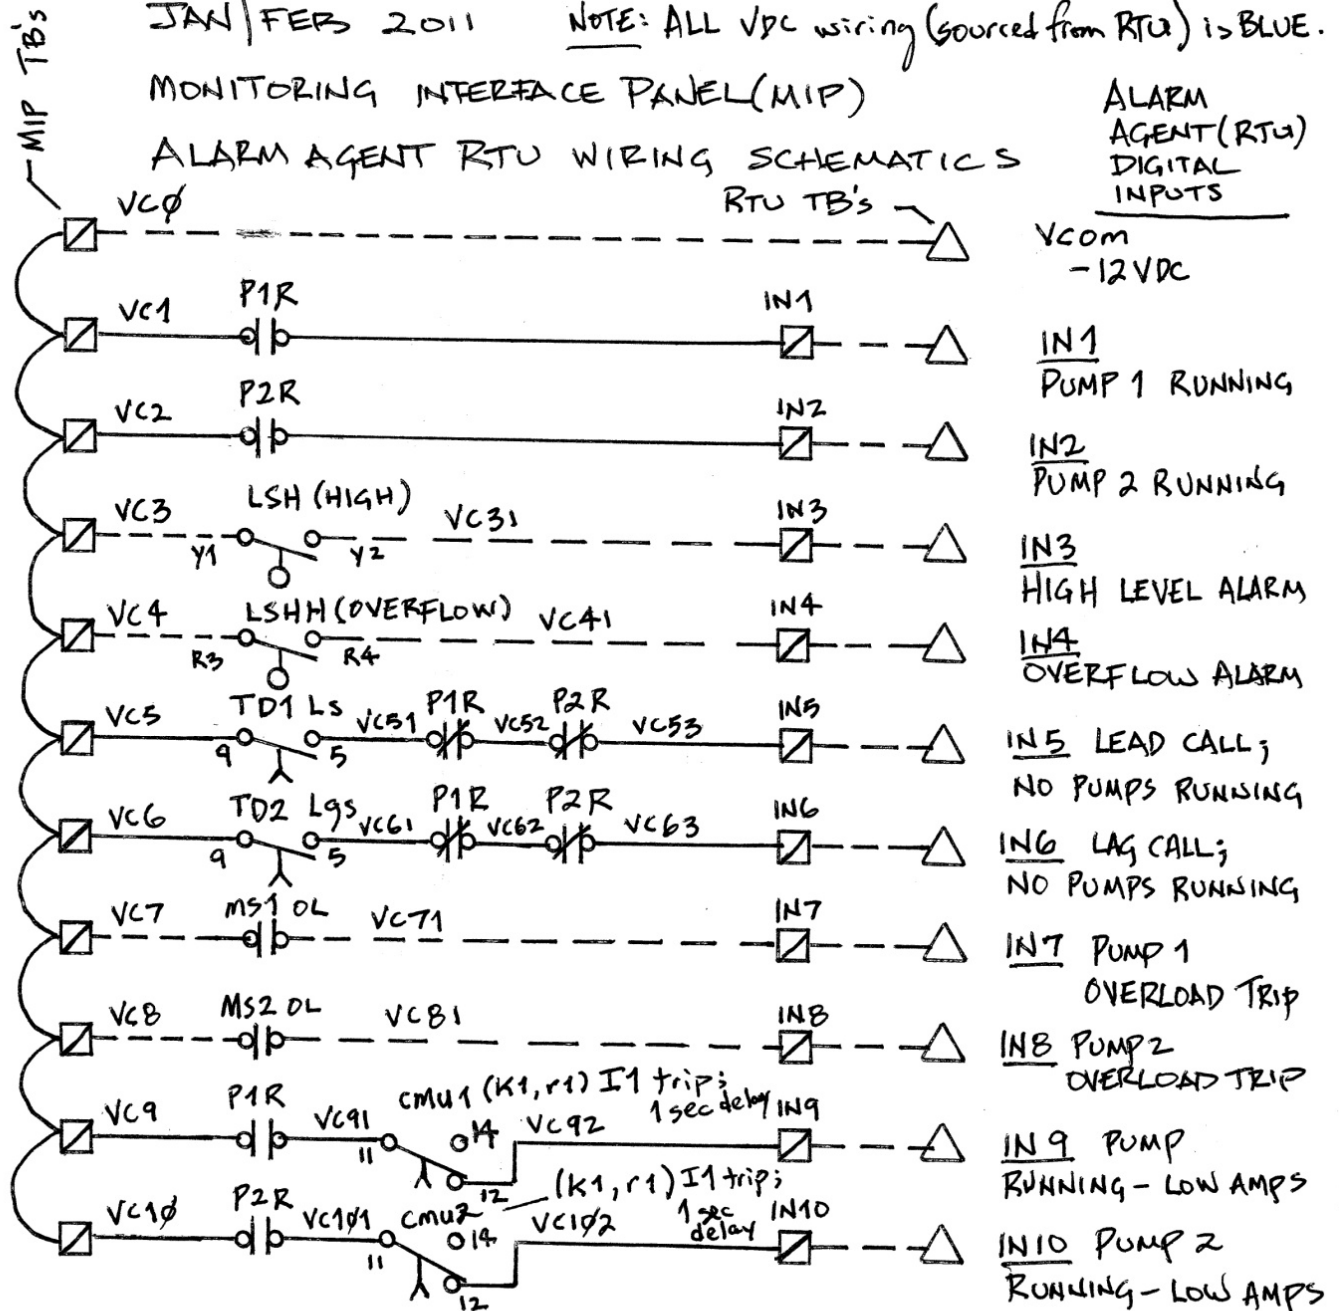 JAN/FEB 2011 NOTE: ALL VDC wiring (sourced from RTU) is BLUE.
MIP TB's
MONITORING INTERFACE PANEL (MIP)
ALARM AGENT RTU WIRING SCHEMATICS
ALARM
AGENT (RTU)
DIGITAL
INPUTS
VCØ RTU TB's
Vcom
-12VDC
VC1 P1R IN1
IN1
PUMP 1 RUNNING
VC2 P2R IN2
IN2
PUMP 2 RUNNING
VC3 LSH (HIGH) VC31 IN3
Y1 Y2
IN3
HIGH LEVEL ALARM
VC4 LSHH (OVERFLOW) VC41 IN4
R3 R4
IN4
OVERFLOW ALARM
VC5 TD1 Ls VC51 P1R VC52 P2R VC53 IN5
9 5
IN5 LEAD CALL;
NO PUMPS RUNNING
VC6 TD2 Lgs VC61 P1R VC62 P2R VC63 IN6
9 5
IN6 LAG CALL;
NO PUMPS RUNNING
VC7 MS1 OL VC71 IN7
IN7 PUMP 1
OVERLOAD TRIP
VC8 MS2 OL VC81 IN8
IN8 PUMP 2
OVERLOAD TRIP
cmu1 (K1, r1) I1 trip;
1 sec delay
VC9 P1R VC91 14 VC92 IN9
11 12
IN9 PUMP
RUNNING - LOW AMPS
(K1, r1) I1 trip;
1 sec
delay
VC1Ø P2R VC1Ø1 cmu2 14 VC1Ø2 IN10
11 12
IN10 PUMP 2
RUNNING - LOW AMPS